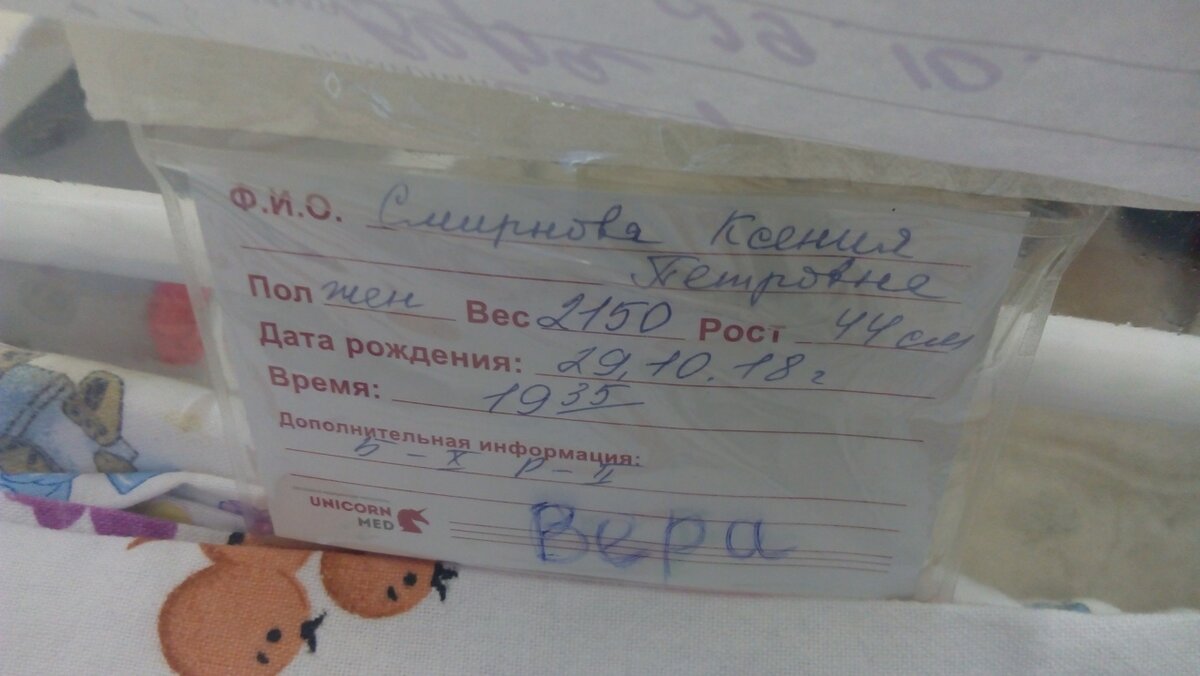 Вера 29.10.
Ф.И.О. Смирнова Ксения
Петровна
Пол жен Вес 2150 Рост 44 см
Дата рождения: 29.10.18 г
Время: 19 35
Дополнительная информация:
Б - X Р - II
UNICORN
MED
Вера